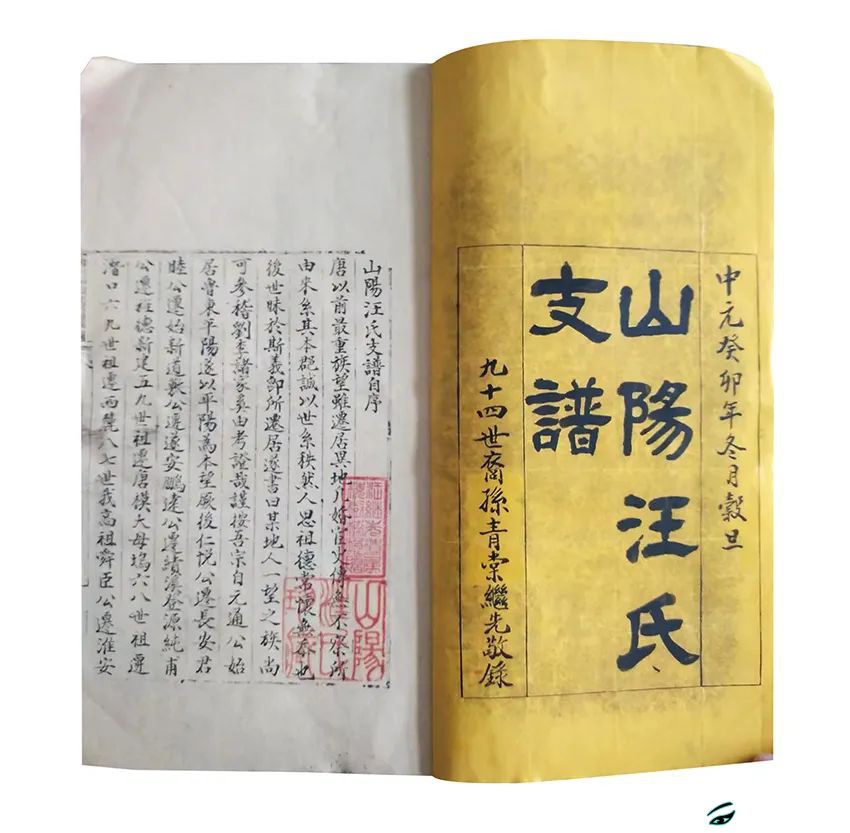 中元癸卯年冬月穀旦
山陽汪氏
支譜
九十四世裔孫青棠繼先敬錄
山陽汪氏支譜自序
唐以前最重族望雖遷居異地凡婚宦史傳無不祭所
由來系其本郡誠以世系秩然人思祖德常懷無忝也
後世昧於斯義即所遷居遂書曰某地人一望之族尚
可參稽劉李諸家奚由考證哉謹按吾宗自元通公始
居魯東平陽遂以平陽為本望厥後仁悅公遷長安君
睦公遷始新道獻公遷遂安鵬達公遷績溪登源純甫
公遷旌德新建五九世祖遷唐模大母塢六八世祖遷
潛口六九世祖遷西麓八七世我高祖舜臣公遷淮安
山陽
汪氏